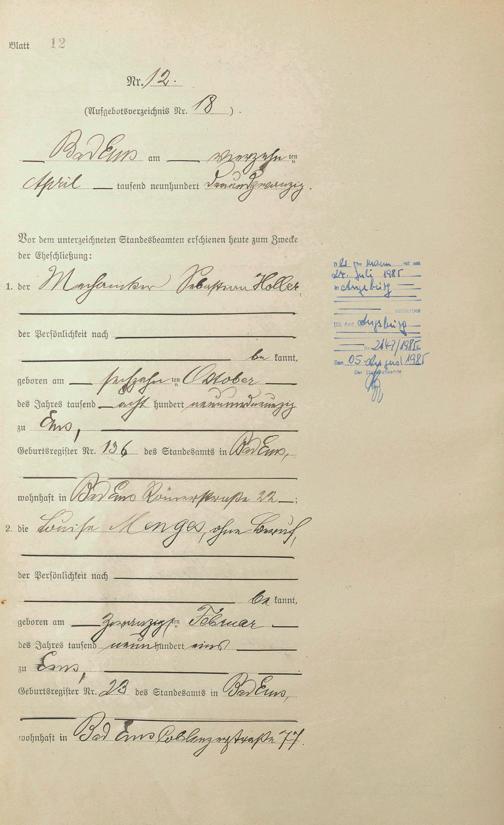 Blatt 12
Nr. 12.
(Aufgebotsverzeichnis Nr. 18 ).
Bad Ems am vierzehnten
April tausend neunhundert
Vor dem unterzeichneten Standesbeamten erschienen heute zum Zwecke
der Eheschließung:
1. der Mechaniker Sebastian Holler,
der Persönlichkeit nach
be kannt,
geboren am sechzehnten Oktober
des Jahres tausend acht hundert neunundneunzig
zu Ems,
Geburtsregister Nr. 136 des Standesamts in Bad Ems,
wohnhaft in Bad Ems Römerstraße 22 ;
2. die Louise Menges, ohne Beruf,
der Persönlichkeit nach
be kannt,
geboren am zwanzigsten Februar
des Jahres tausend neun hundert eins
zu Ems,
Geburtsregister Nr. 23 des Standesamts in Bad Ems,
wohnhaft in Bad Ems Coblenzerstraße 77.
Juli 1985
in Augsburg
Augsburg
Nr. 2147/1985
05. August 1985